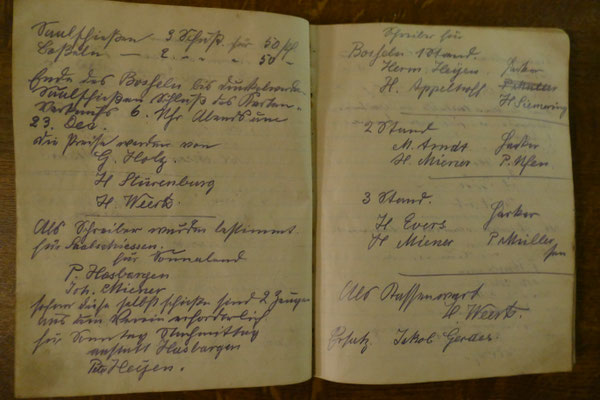 Saalschießen 3 Schuß für 50 Pf
Boßeln — 2 " " " 50 "
Ende des Bosseln bis dunkelwerden
Saalschießen Schluß des Karten-
verkaufs 6 Uhr Abends am
23. Dec.
die Preise werden von
G. Holz.
H Stürenburg
H. Weerts.
Als Schreiber wurden bestimmt
für Saalschiessen.
für Sonnabend
P. Hasbargen
Joh. Miener
sofern diese selbst schießen sind 2 Zeugen
aus dem Verein erforderlich
für Sonntag Nachmittag
anstatt Hasbargen
Heyen.
Schreiber für
Bosseln 1 Stand.
Herm. Heyen. Harker
H. Appelhoff
H Siemering
2 Stand
M. Arndt Harker
H. Miener P. Uhen
3 Stand.
H. Evers Harker
H Miener P Müller
Als Kassenwart
H. Weerts.
Ersatz Jakob Gerdes